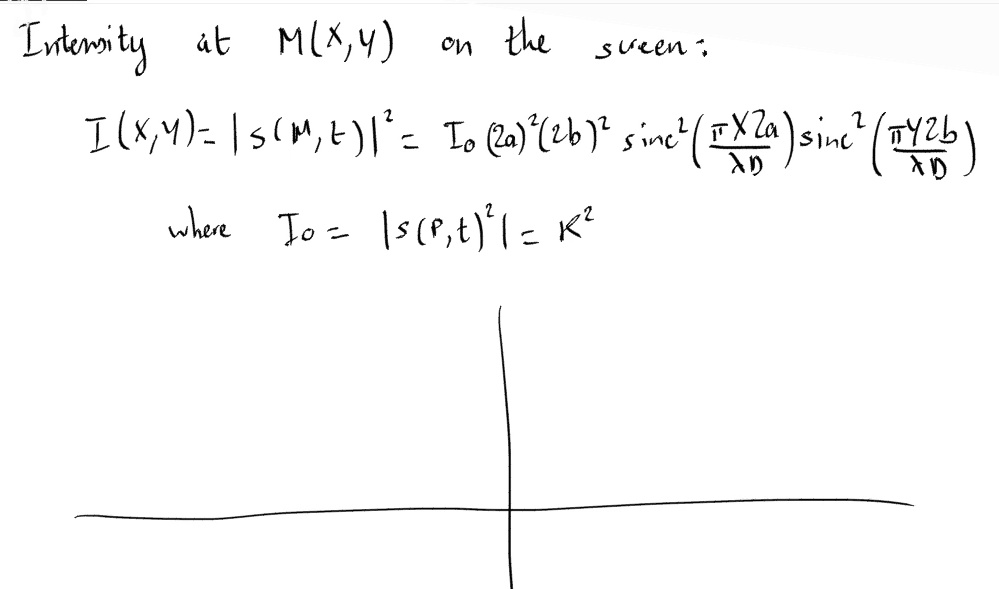 Intensity at M(X,Y) on the screen:
I(X,Y) = |s(M,t)|² = I₀ (2a)² (2b)² sinc² (πX2a/λD) sinc² (πY2b/λD)
where I₀ = |s(P,t)²| = K²